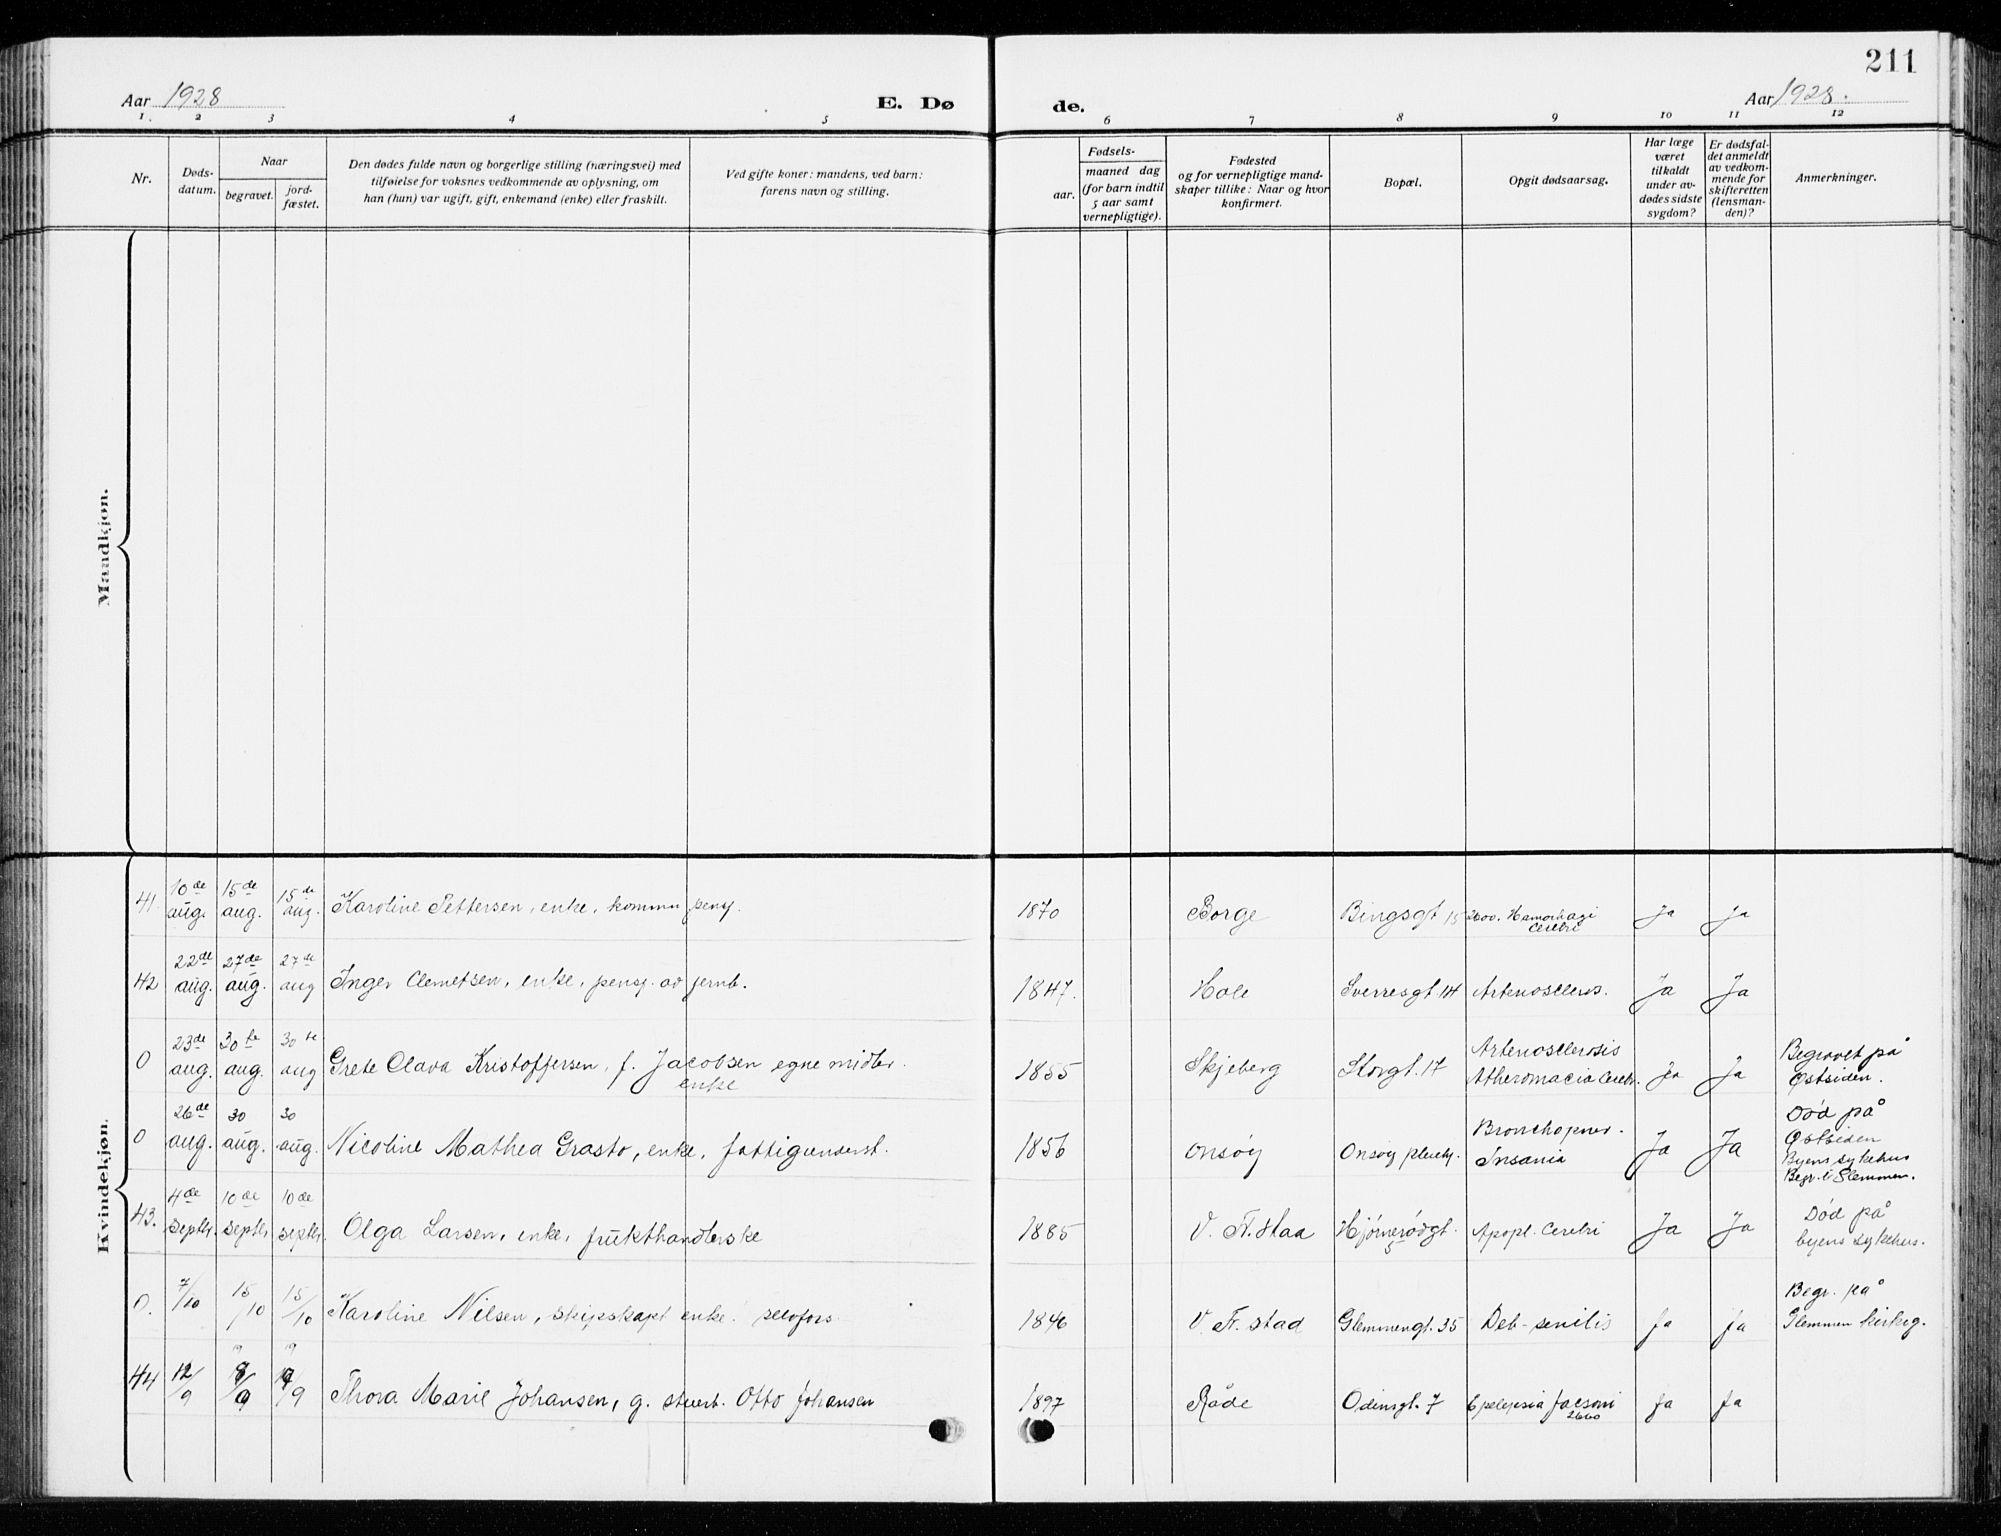 211
Aar 1928
E. Dø
de.
Aar 1928.
1. 2 3 4 5 6 7 8 9 10 11 12
Nr.
Døds-
datum.
Naar
begravet.
jord-
fæstet.
Den dødes fulde navn og borgerlige stilling (næringsvei) med
tilføielse for voksnes vedkommende av oplysning, om
han (hun) var ugift, gift, enkemand (enke) eller fraskilt.
Ved gifte koner: mandens, ved barn:
farens navn og stilling.
Fødsels-
aar.
maaned dag
(for barn indtil
5 aar samt
vernepligtige).
Fødested
og for vernepligtige mand-
skaper tillike: Naar og hvor
konfirmert.
Bopæl.
Opgit dødsaarsag.
Har læge
været
tilkaldt
under av-
dødes sidste
sygdom?
Er dødsfal-
det anmeldt
av vedkom-
mende for
skifteretten
(lensman-
den)?
Anmerkninger.
Mandkjøn.
Kvindekjøn.
41 10de aug. 15de aug. 15de aug. Karoline Pettersen, enke, kommu pensj. 1870 Borge Bingsgt 15 Hamorhagi Cerebri Ja Ja
42 22de aug. 27de aug. 27de aug Inger Clemetsen, enke, pensj. av jernb. 1847. Hole Sverresgt 14 Ja Ja
0 23de aug. 30te aug. 30te aug Grete Olava Kristoffersen, f. Jacobsen egne midler. enke 1855 Skjeberg Storgt. 17 Ja Ja Begravet på
Østsiden.
0 26de aug. 30 aug. 30 aug. Nicoline Mathea Grasto, enke, 1856 Onsøy Onsøy pleiehj. Insania Ja Ja Død på
Østsiden
Byens sykehus
Begr. i Glemmen.
43. 4de septbr. 10de septbr. 10de septbr. Olga Larsen, enke, frukthandlerske 1885 V. Fr.staa Hjørnerødgt. 5 Apopl. Cerebri Ja Ja Død på
byens sykehus.
0. 7/10 15/10 15/10 Karoline Nilsen, skipskapt enke. selvfors. 1846 V. Fr. stad Glemmengt. 35 Deb-senilis Ja Ja Begr. på
Glemmen kirkeg.
19 19
44 12/9 Thora Marie Johansen, g. stuert. Otto Johansen 1897 Råde Odinsgt. 7 Ja Ja